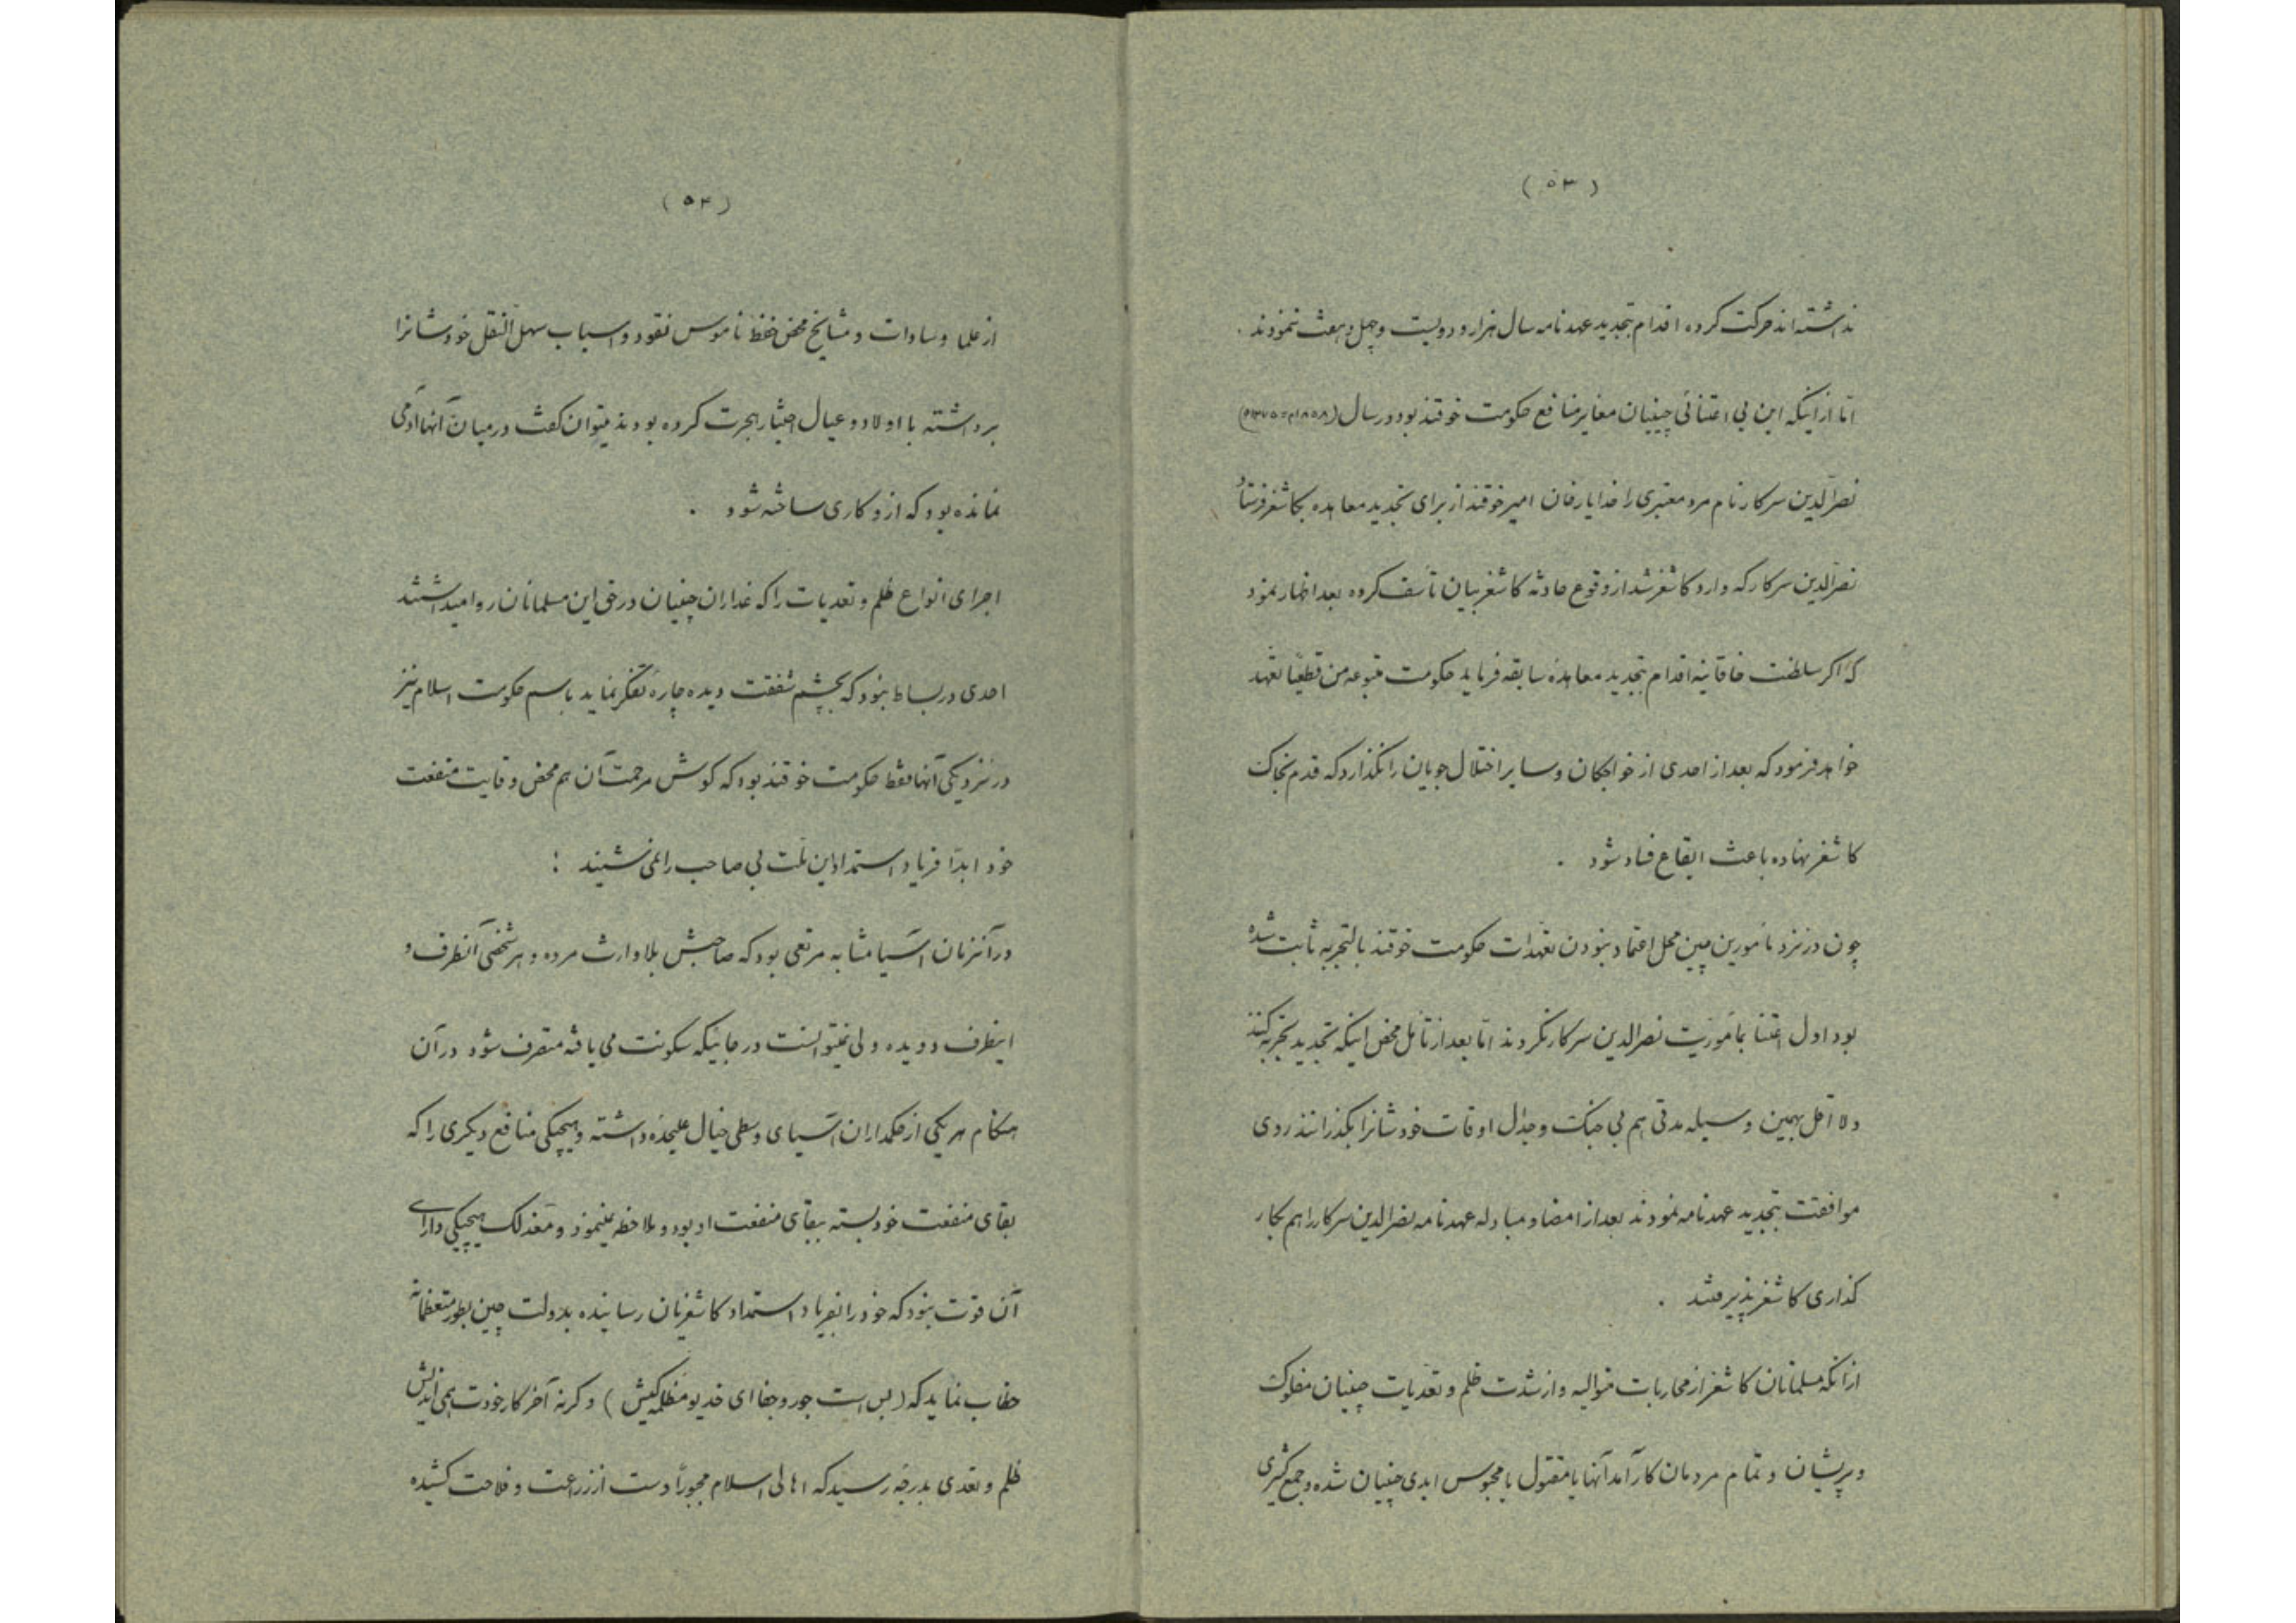 (۵۳)
نداشته‌اند حرکت کرده اقدام بتجدید عهدنامه سال هزار و دویست و چهل و هفت ننمودند .
امّا از اینکه این بی اعتنائی چینیان مغایر منافع حکومت خوقند بود در سال (۱۸۵۸م=۱۲۷۵ه)
نصرالدین سرکار نام مرد معتبری را خدایارخان امیر خوقند از برای تجدید معاهده بکاشغر فرستاد
نصرالدین سرکار که وارد کاشغر شد از وقوع حادثه کاشغر بیان تأسف کرده بعد اظهار نمود
که اگر سلطنت خاقانیه اقدام بتجدید معاهدهٔ سابقه فرماید حکومت متبوعه من قطعیّاً تعهد
خواهد فرمود که بعد از احدی از خواجکان و سایر اختلال جویان را نگذارد که قدم بخاک
کاشغر نهاده باعث ایقاع فساد شود .
چون در نزد مأمورین چین محل اعتماد نبودن تعهّدات حکومت خوقند بالتجربه ثابت شده
بود اول اعتنا بمأموریّت نصرالدین سرکار نکردند امّا بعد از تأمّل محض اینکه تجدید تجربه کنند
و لااقل بهمین وسیله مدتی هم بی جنک و جدال اوقات خودشانرا بکذرانند روی
موافقت بتجدید عهدنامه نمودند بعد از امضا و مبادله عهدنامه نصرالدین سرکار را هم بکار
کذاری کاشغر پذیرفتند .
ازانکه مسلمانان کاشغر از محاربات متوالیه و از شدت ظلم و تعدّیات چینیان مفلوک
و پریشان و تمام مردمان کارآمد آنها یا مقتول یا محبوس ابدی چینیان شده و جمع کثیری
(۵۴)
از علما و سادات و مشایخ محض حفظ ناموس نقود و اسباب سهل النقل خودشانرا
برداشته با اولاد و عیال اختیار هجرت کرده بودند میتوان کفت در میان آنها آدمی
نمانده بود که از و کاری ساخته شود .
اجرای انواع ظلم و تعدیات را که غداران چینیان در حق این مسلمانان روا میداشتند
احدی در بساط نبود که بچشم شفقت دیده چارهٔ تفکر نماید باسم حکومت اسلام نیز
در نزدیکی آنها فقط حکومت خوقند بود که کوش مرحمت آن هم محض وقایت منفعت
خود ابدًا فریاد استمداد این ملّت بی صاحب را نمی شنید :
در آنزمان آسیا مشابه مرتعی بود که صاحبش بلاوارث مرده و هر شخصی آنطرف و
اینطرف دویده ولی نمیتوانست در جائیکه سکونت می یافته متصرف شود در آن
هنکام هر یکی از حکمداران آسیای وسطی خیال علیحده داشته و هیچیکی منافع دیکری را که
بقای منفعت خود بسته ببقای منفعت او بود ملاحظه نمینمود و معذلک هیچیکی دارای
آن قوّت نبود که خود را بفریاد استمداد کاشغریان رسانیده بدولت چین بطور متعظمانه
خطاب نماید که (بس است جور و جفا ای خدیو مظلمه کیش) و کرنه آخر کار خودت همی اندیش
ظلم و تعدی بدرجهٔ رسید که اهالی اسلام مجبوراً دست از زراعت و فلاحت کشیده